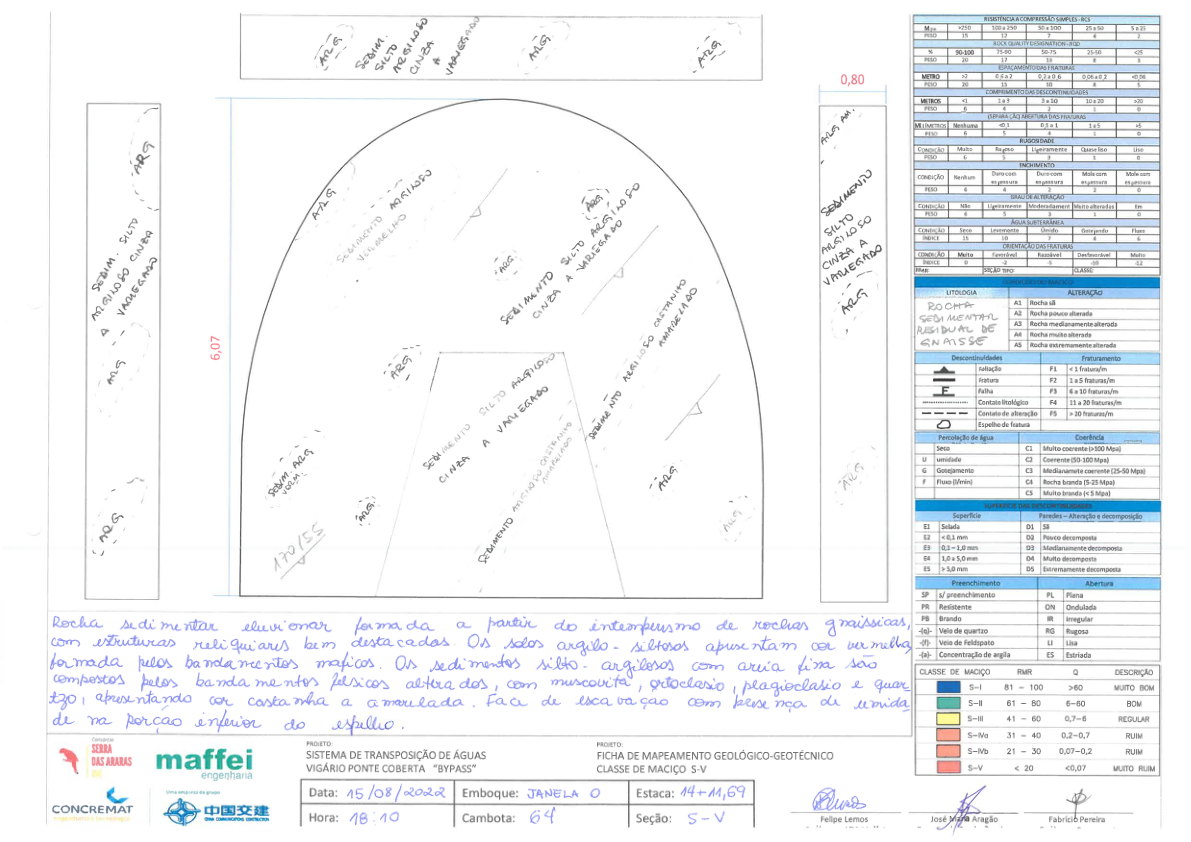 ARG
SEDIM.
SILTO
ARGILOSO
CINZA
A
VARIEGADO
ARG
ARG
0,80
6,07
ARG
SEDIM. SILTO
ARGILOSO CINZA
A VARIEGADO
ARG
ARG
ARG
SEDIMENTO ARGILOSO
VERMELHO
ARG
ARG
SEDIMENTO SILTO ARGILOSO
CINZA A VARIEGADO
SEDIMENTO ARGILOSO CASTANHO
AMARELADO
ARG
SEDIMENTO SILTO ARGILOSO
CINZA A VARIEGADO
SEDIMENTO ARGILOSO CASTANHO
AMARELADO
SEDIM. ARG
VERM.
ARG
ARG
ARG
170/55
ARG AM.
SEDIMENTO
SILTO
ARGILOSO
CINZA A
VARIEGADO
ARG
ARG
RESISTÊNCIA A COMPRESSÃO SIMPLES - RCS
Mpa >250 100 a 250 50 a 100 25 a 50 5 a 25
PESO 15 12 7 4 2
ROCK QUALITY DESIGNATION - RQD
% 90-100 75-90 50-75 25-50 <25
PESO 20 17 13 8 3
ESPAÇAMENTO DAS FRATURAS
METRO >2 0,6 a 2 0,2 a 0,6 0,06 a 0,2 <0,06
PESO 20 15 10 8 5
COMPRIMENTO DAS DESCONTINUIDADES
METROS <1 1 a 3 3 a 10 10 a 20 >20
PESO 6 4 2 1 0
(SEPARAÇÃO) ABERTURA DAS FRATURAS
MILÍMETROS Nenhuma <0,1 0,1 a 1 1 a 5 >5
PESO 6 5 4 1 0
RUGOSIDADE
CONDIÇÃO Muito Rugoso Ligeiramente Quase liso Liso
PESO 6 5 3 1 0
ENCHIMENTO
CONDIÇÃO Nenhum Duro com espessura Duro com espessura Mole com espessura Mole com espessura
PESO 6 4 2 2 0
GRAU DE ALTERAÇÃO
CONDIÇÃO Não Ligeiramente Moderadament Muito alteradas Em
PESO 6 5 3 1 0
ÁGUA SUBTERRÂNEA
CONDIÇÃO Seco Levemente Úmido Gotejando Fluxo
ÍNDICE 15 10 7 4 0
ORIENTAÇÃO DAS FRATURAS
CONDIÇÃO Muito Favorável Razoável Desfavorável Muito
ÍNDICE 0 -2 -5 -10 -12
RMR SEÇÃO TIPO: CLASSE:
LITOLOGIA ALTERAÇÃO
ROCHA
SEDIMENTAR
RESIDUAL DE
GNAISSE
A1 Rocha sã
A2 Rocha pouco alterada
A3 Rocha medianamente alterada
A4 Rocha muito alterada
A5 Rocha extremamente alterada
Descontinuidades Fraturamento
Foliação F1 < 1 fratura/m
Fratura F2 1 a 5 fraturas/m
F Falha F3 6 a 10 fraturas/m
Contato litológico F4 11 a 20 fraturas/m
Contato de alteração F5 > 20 fraturas/m
Espelho de fratura
Percolação de água Coerência
Seco C1 Muito coerente (>100 Mpa)
U umidade C2 Coerente (50-100 Mpa)
G Gotejamento C3 Medianamete coerente (25-50 Mpa)
F Fluxo (l/min) C4 Rocha branda (5-25 Mpa)
C5 Muito branda (< 5 Mpa)
SUPERFÍCIE DAS DESCONTINUIDADES
Superfície Paredes – Alteração e decomposição
E1 Selada D1 Sã
E2 < 0,1 mm D2 Pouco decomposta
E3 0,1 – 1,0 mm D3 Medianamente decomposta
E4 1,0 a 5,0 mm D4 Muito decomposta
E5 > 5,0 mm D5 Extremamente decomposta
Preenchimento Abertura
SP s/ preenchimento PL Plana
PR Resistente ON Ondulada
PB Brando IR Irregular
-(q)- Veio de quartzo RG Rugosa
-(f)- Veio de Feldspato LI Lisa
-(a)- Concentração de argila ES Estriada
CLASSE DE MACIÇO RMR Q DESCRIÇÃO
S-I 81 - 100 >60 MUITO BOM
S-II 61 - 80 6-60 BOM
S-III 41 - 60 0,7-6 REGULAR
S-IVa 31 - 40 0,2-0,7 RUIM
S-IVb 21 - 30 0,07-0,2 RUIM
S-V < 20 <0,07 MUITO RUIM
Rocha sedimentar eluvionar formada a partir do intemperismo de rochas gnaissicas,
com estruturas reliquiares bem destacadas. Os solos argilo-siltosos apresentam cor vermelha
formada pelos bandamentos maficos. Os sedimentos silto-argilosos com areia fina são
compostos pelos bandamentos felsicos alterados, com muscovita, ortoclasio, plagioclasio e quar-
tzo, apresentando cor castanha a amarelada. Face de escavação com presença de umida
de na porcao inferior do espelho.
Consórcio
SERRA
DAS ARARAS
maffei
engenharia
CONCREMAT
engenharia e tecnologia
Uma empresa do grupo
中国交建
CHINA COMMUNICATIONS CONSTRUCTION
PROJETO:
SISTEMA DE TRANSPOSIÇÃO DE ÁGUAS
VIGÁRIO PONTE COBERTA "BYPASS"
PROJETO:
FICHA DE MAPEAMENTO GEOLÓGICO-GEOTÉCNICO
CLASSE DE MACIÇO S-V
Data: 15/08/2022 Emboque: JANELA O Estaca: 14+11,69
Hora: 18:10 Cambota: 64 Seção: S-V
Felipe Lemos José Maria Aragão Fabrício Pereira